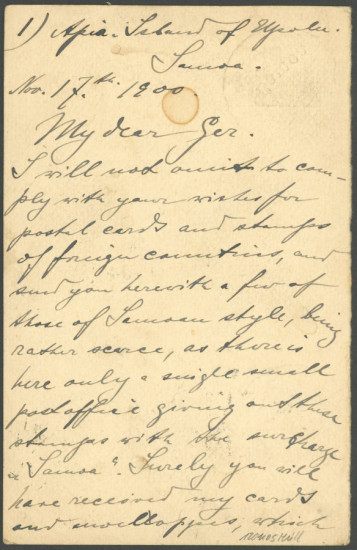 1) Apia. Island of Upolu.
Samoa.
Nov. 17th. 1900
My dear Ger.
I will not omit to com-
ply with your wishes for
postal cards and stamps
of foreign countries, and
send you herewith a few of
those of Samoan style, being
rather scarce, as there is
here only a single small
postoffice giving out these
stamps with the surcharge
a "Samoa". Surely you will
have received my cards
and envelloppes, which